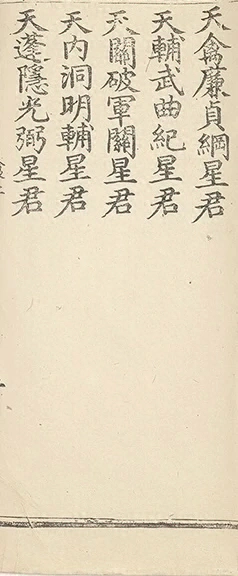 天禽廉貞綱星君
天輔武曲紀星君
天關破軍關星君
天內洞明輔星君
天蓬隱光弼星君